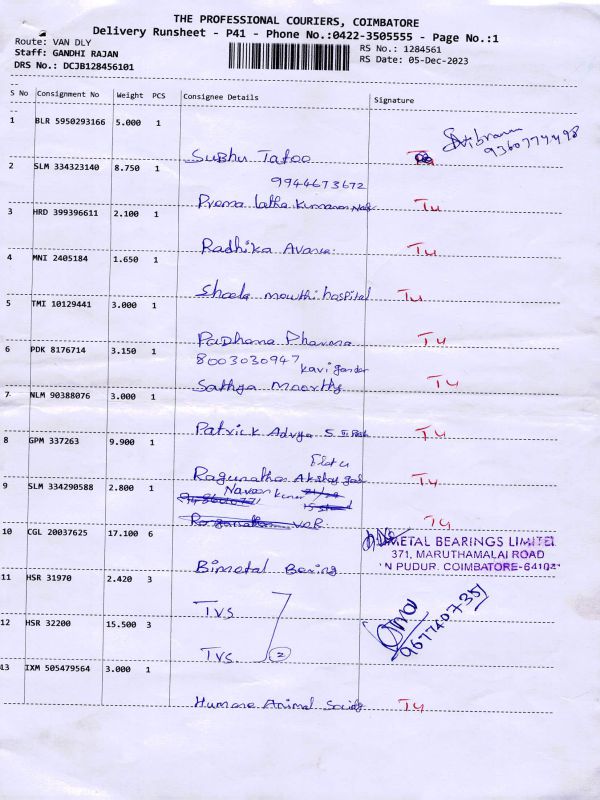 THE PROFESSIONAL COURIERS, COIMBATORE
Delivery Runsheet - P41 - Phone No.:0422-3505555 - Page No.:1
Route: VAN DLY
RS No.: 1284561
Staff: GANDHI RAJAN
RS Date: 05-Dec-2023
DRS No.: DCJB128456101
S No Consignment No Weight PCS Consignee Details Signature
1 BLR 5950293166 5.000 1
9360777498
Subhu Tatoo
2 SLM 334323140 8.750 1
9944673672
Prema latha kumaran Tu
3 HRD 399396611 2.100 1
Radhika Tu
4 MNI 2405184 1.650 1
Sheela mowthi hospital Tu
5 TMI 10129441 3.000 1
Padhama Pharma Tu
6 PDK 8176714 3.150 1
8003030947
Sathya Moorthy Tu
7 NLM 90388076 3.000 1
Patrick Advya S Tu
8 GPM 337263 9.900 1
Flat
Ragunathan Akshay Tu
9 SLM 334290588 2.800 1
Naveen kumar
Tu
10 CGL 20037625 17.100 6
BIMETAL BEARINGS LIMITED
371, MARUTHAMALAI ROAD
N PUDUR. COIMBATORE-641041
Bimetal Bearing
11 HSR 31970 2.420 3
TVS
9677407351
12 HSR 32200 15.500 3
TVS 2
13 IXM 505479564 3.000 1
Humane Animal Society Tu